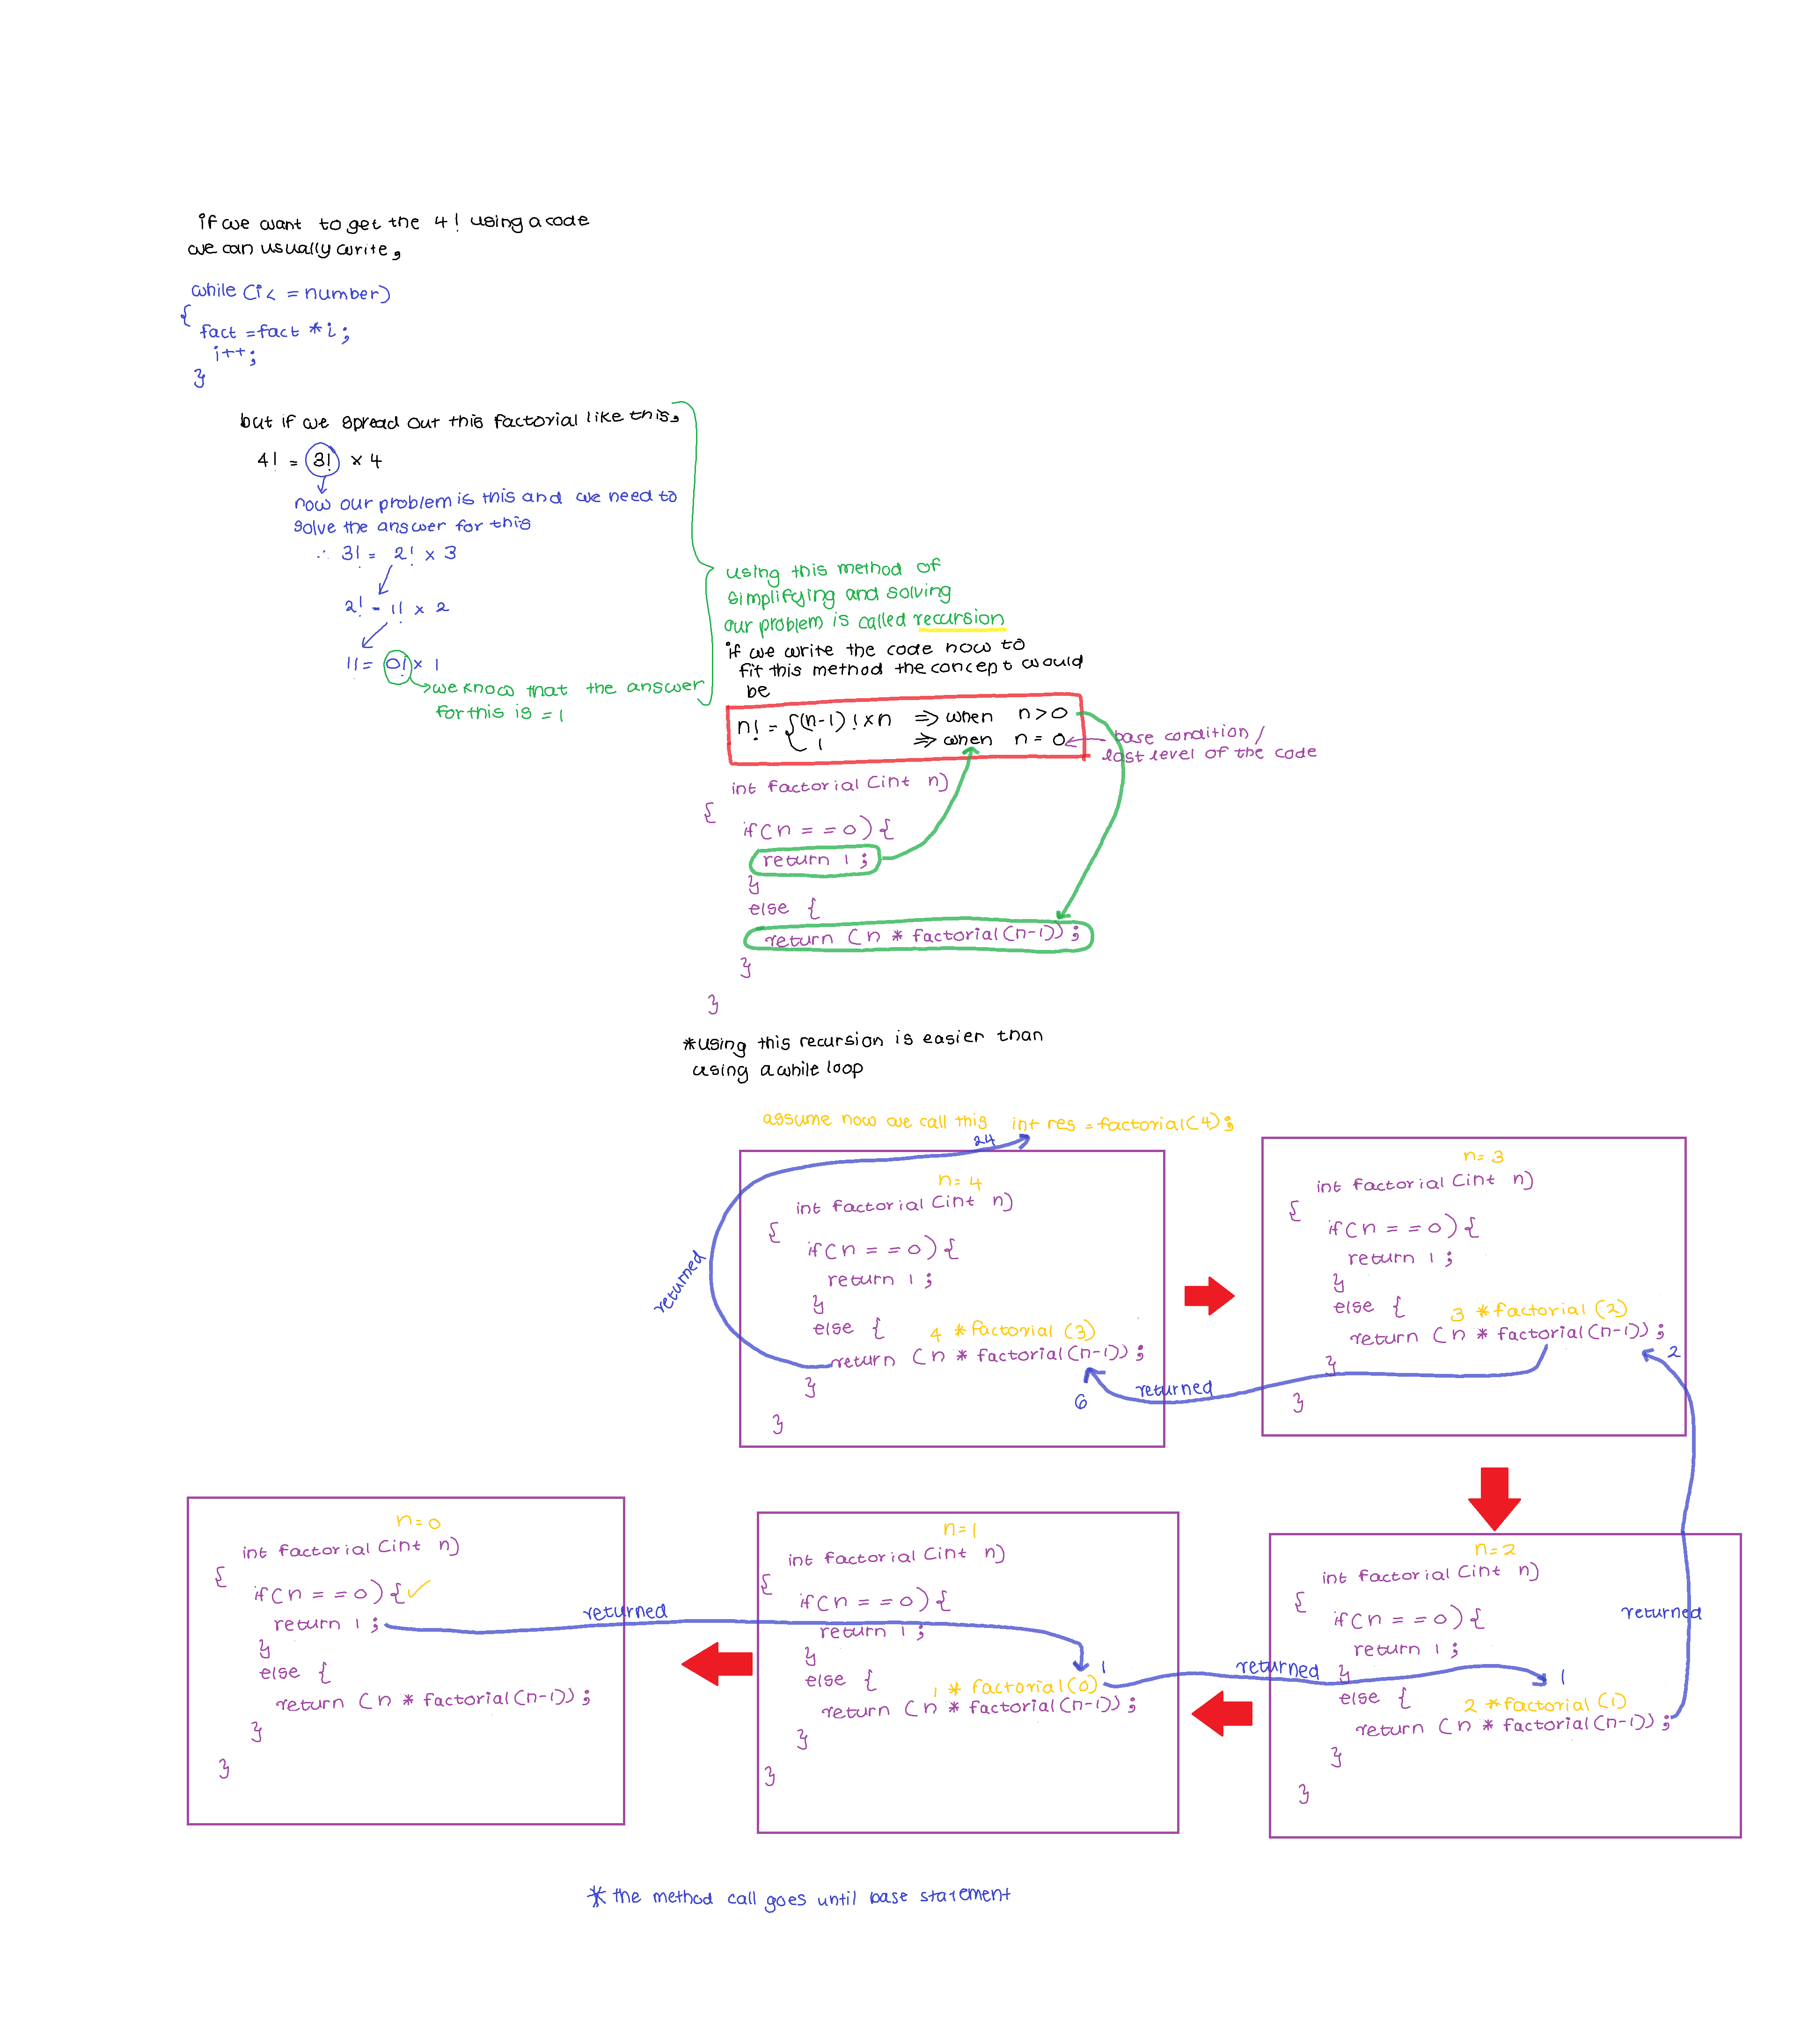 if we want to get the 4! using a code
we can usually write,
while (i < = number)
{
fact = fact * i;
i++;
}
but if we spread out this factorial like this,
4! = 3! × 4
now our problem is this and we need to
solve the answer for this
∴ 3! = 2! × 3
2! = 1! × 2
1! = 0! × 1
we know that the answer
for this is = 1
using this method of
simplifying and solving
our problem is called recursion
if we write the code now to
fit this method the concept would
be
n! = { (n-1)! × n ⇒ when n > 0
1 ⇒ when n = 0
base condition /
last level of the code
int factorial (int n)
{
if (n = = 0) {
return 1 ;
}
else {
return (n * factorial (n-1)) ;
}
}
*using this recursion is easier than
using a while loop
assume now we call this int res = factorial(4);
24
n = 4
int factorial (int n)
{
if (n = = 0) {
return 1 ;
}
else {
4 * factorial (3)
return (n * factorial (n-1)) ;
}
}
returned
6
returned
n = 3
int factorial (int n)
{
if (n = = 0) {
return 1 ;
}
else {
3 * factorial (2)
return (n * factorial (n-1)) ;
}
}
2
returned
n = 0
int factorial (int n)
{
if (n = = 0) { ✓
return 1 ;
}
else {
return (n * factorial (n-1)) ;
}
}
returned
n = 1
int factorial (int n)
{
if (n = = 0) {
return 1 ;
}
else {
1
1 * factorial (0)
return (n * factorial (n-1)) ;
}
}
returned
n = 2
int factorial (int n)
{
if (n = = 0) {
return 1 ;
}
else {
1
2 * factorial (1)
return (n * factorial (n-1)) ;
}
}
* the method call goes until base statement